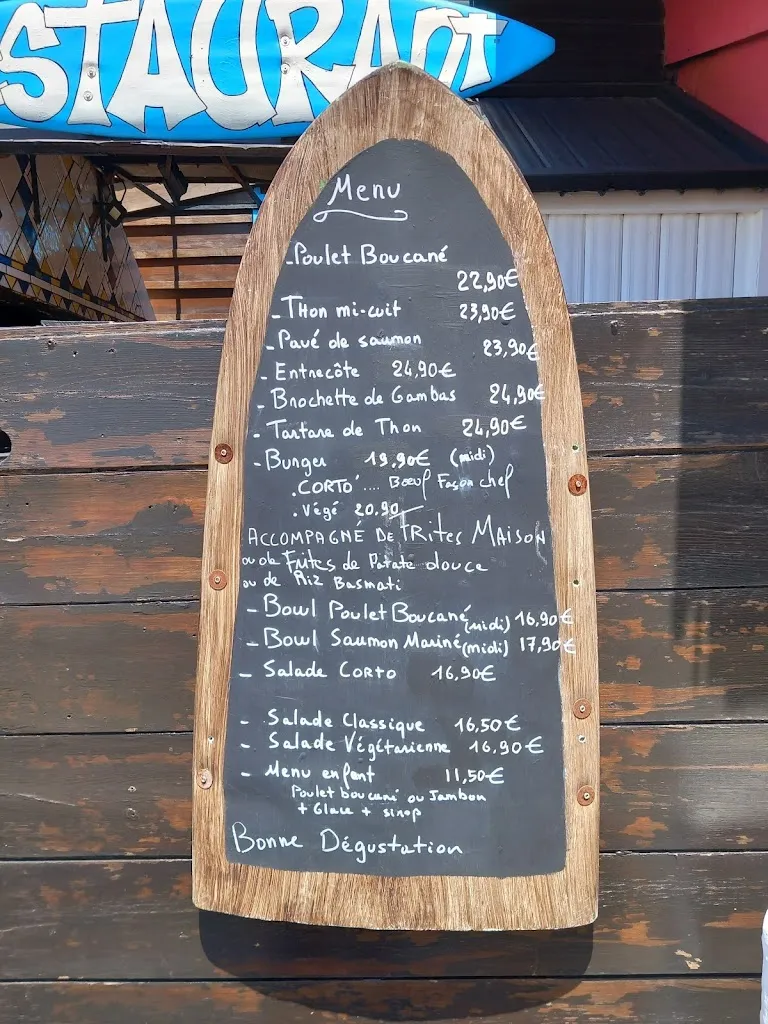 STAURANT
Menu
- Poulet Boucané
22,90€
- Thon mi-cuit 23,90€
- Pavé de saumon 23,90€
- Entrecôte 24,90€
- Brochette de Gambas 24,90€
- Tartare de Thon 24,90€
- Burger 19,90€ (midi)
. CORTO .... Bœuf Façon chef
. Végé 20,90
ACCOMPAGNÉ DE FRITES MAISON
ou de Frites de Patate douce
ou de Riz Basmati
- Bowl Poulet Boucané (midi) 16,90€
- Bowl Saumon Mariné (midi) 17,90€
- Salade CORTO 16,90€
- Salade Classique 16,50€
- Salade Végétarienne 16,90€
- Menu enfant 11,50€
Poulet boucané ou Jambon
+ Glace + sirop
Bonne Dégustation